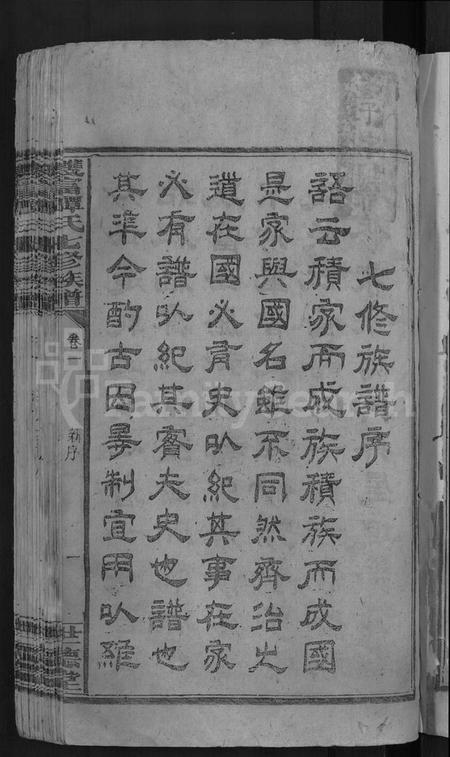 七修族譜序
語云積家而成族積族而成國
是家與國名雖不同然齊治之
道在國必有史以紀其事在家
必有譜以紀其實夫史也譜也
其準今酌古因羣制宜用以維
譚氏七修族譜
卷一
新序
一